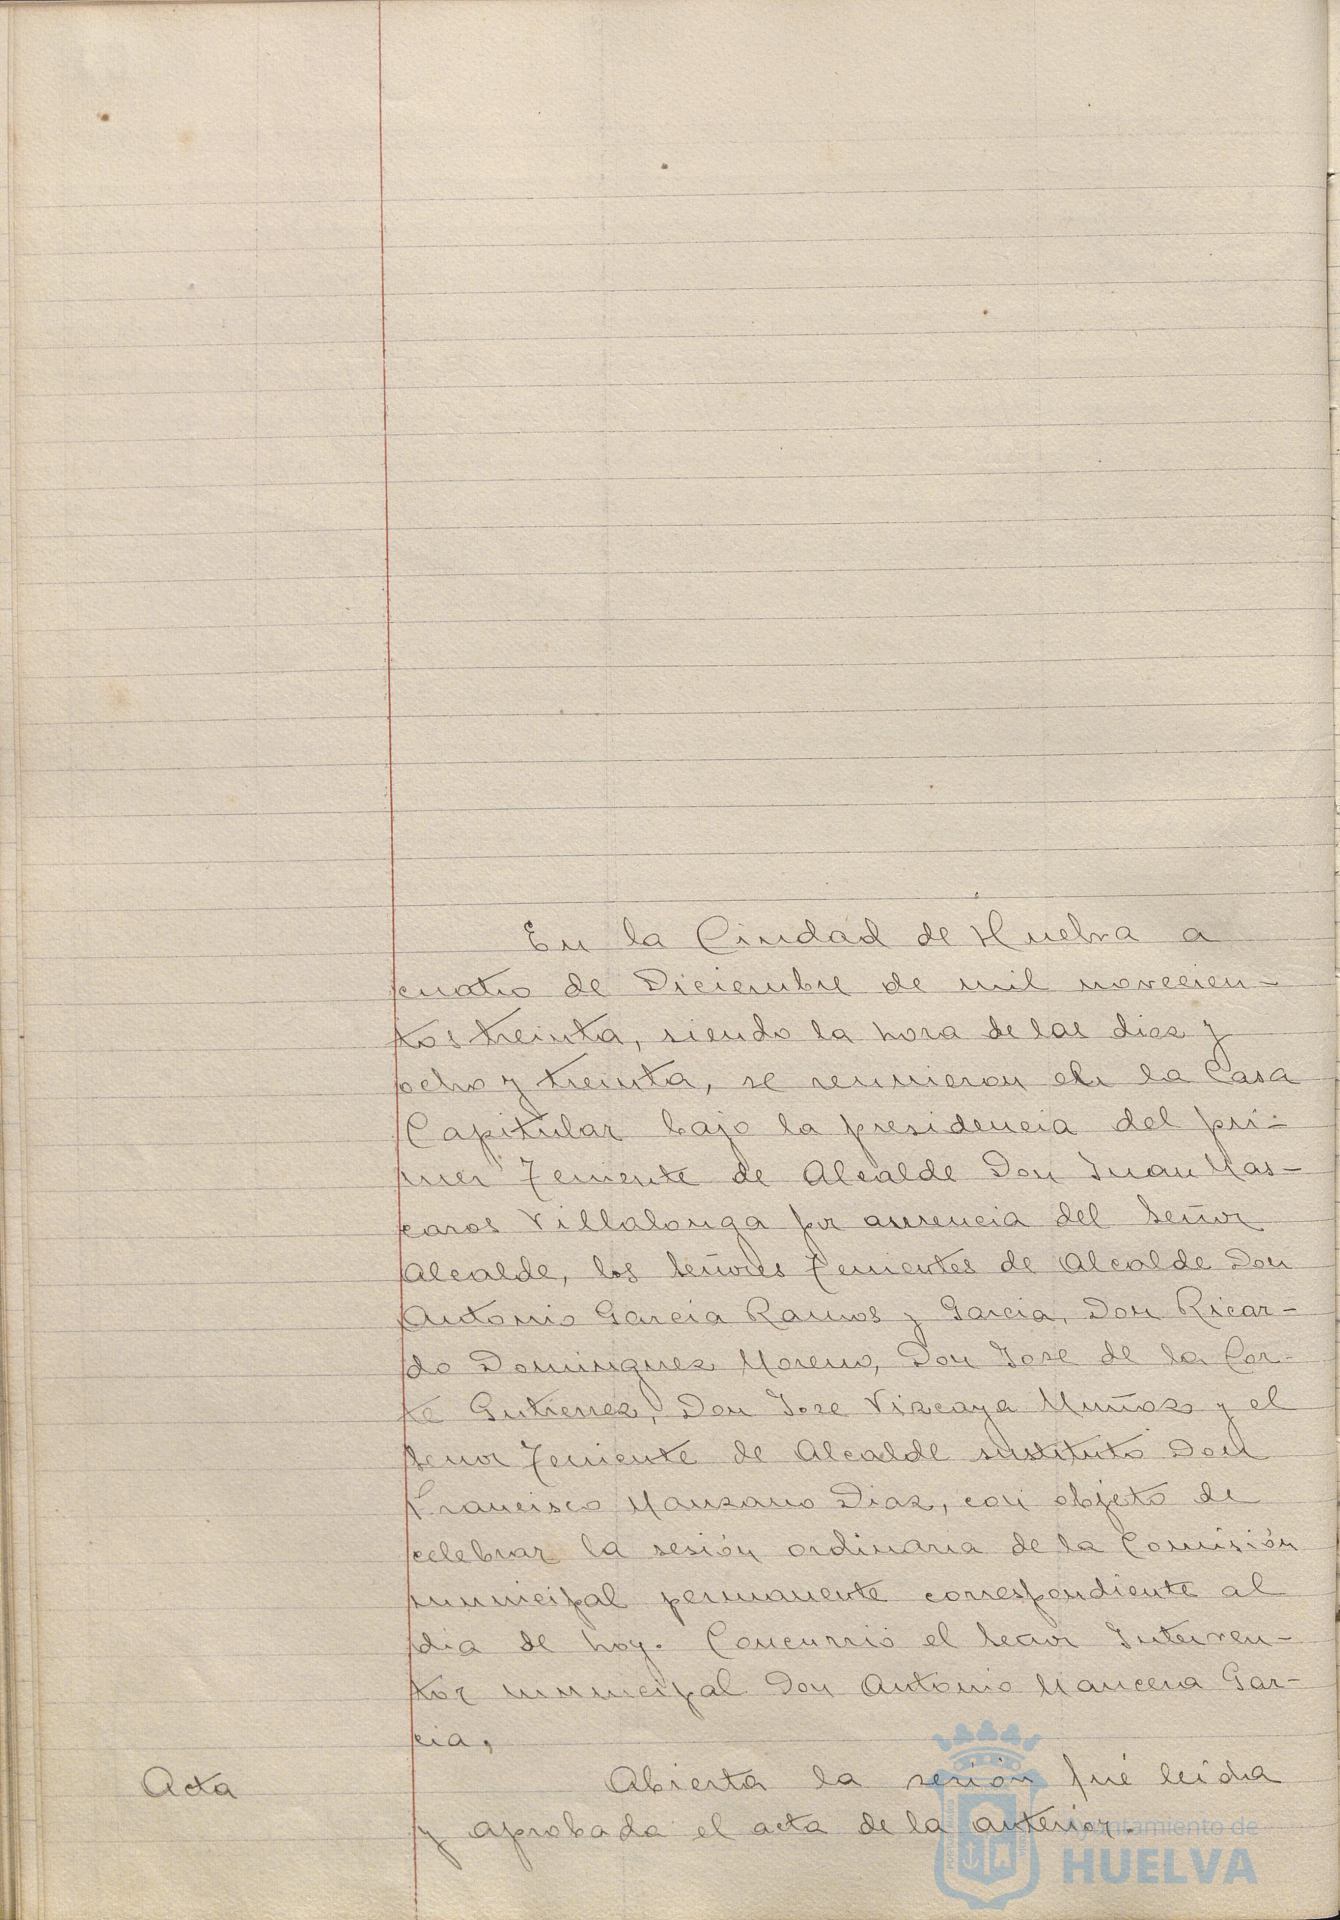 En la Ciudad de Huelva a
cuatro de Diciembre de mil novecien-
tos treinta, siendo la hora de las diez y
ocho y treinta, se reunieron en la Casa
Capitular bajo la presidencia del pri-
mer Teniente de Alcalde Don Juan Mas-
caros Villalonga por ausencia del Señor
Alcalde, los Señores Tenientes de Alcalde Don
Antonio Garcia Ramos y Garcia, Don Ricar-
do Dominguez Moreno, Don Jose de la Cor-
te Gutierrez, Don Jose Vizcaya Muñoz y el
Señor Teniente de Alcalde sustituto Don
Francisco Manzano Diaz, con objeto de
celebrar la sesión ordinaria de la Comisión
municipal permanente correspondiente al
dia de hoy. Concurrió el Señor Interven-
tor municipal Don Antonio Mancera Gar-
cia.
Acta Abierta la sesión fué leída
y aprobada el acta de la anterior.
Ayuntamiento de
HUELVA